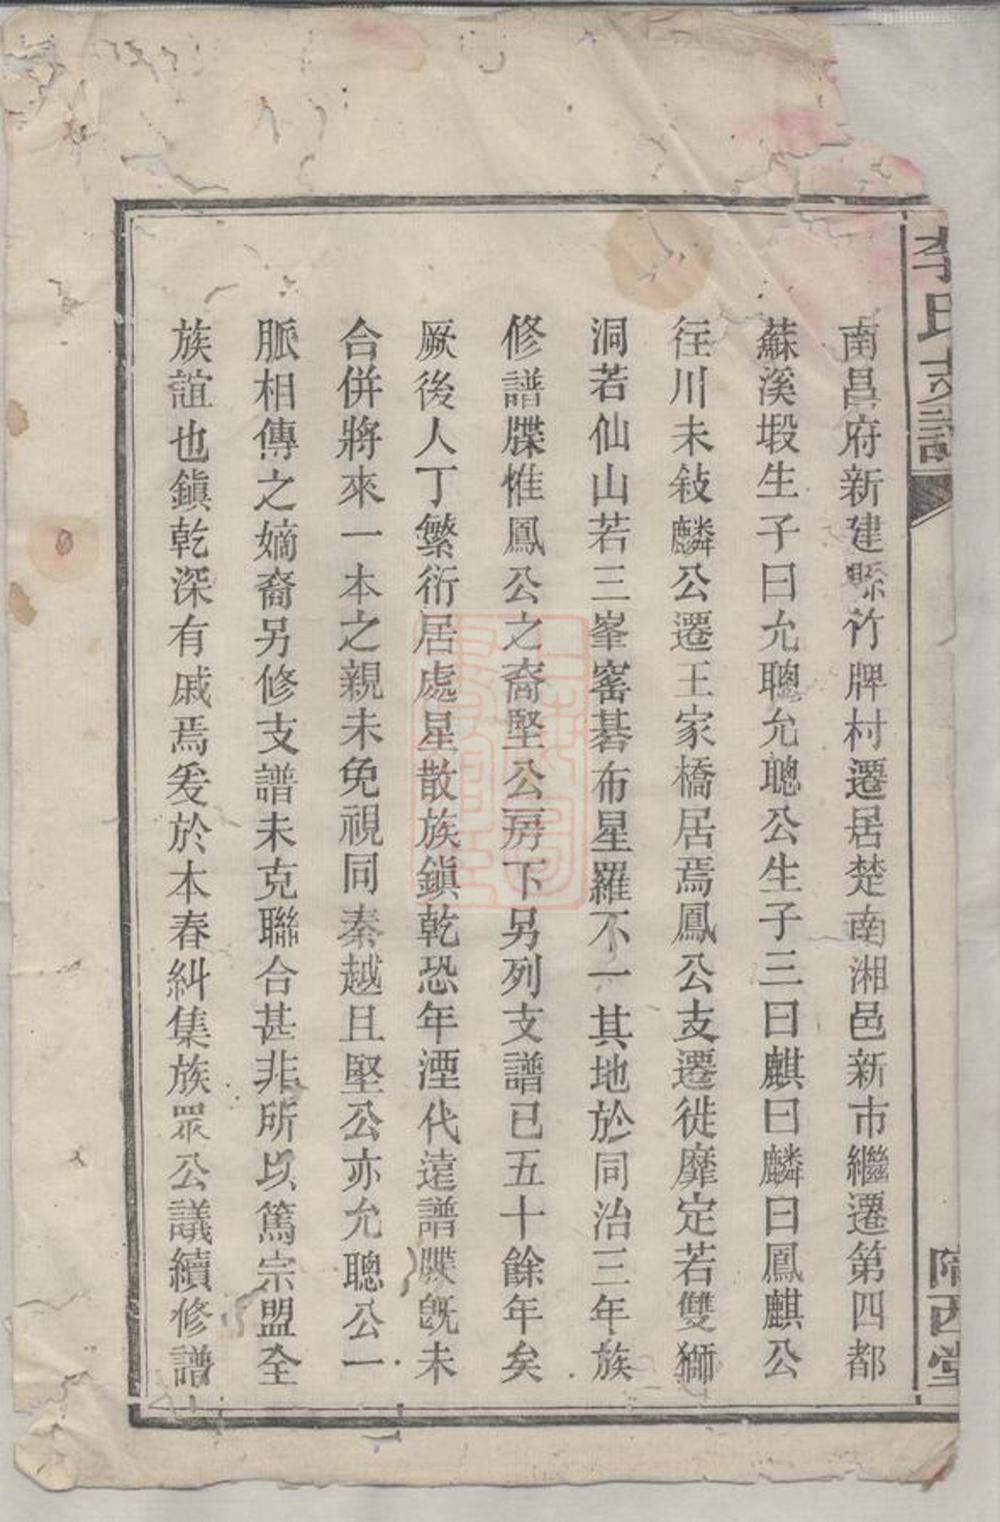 李氏支譜
南昌府新建縣竹牌村遷居楚南湘邑新市繼遷第四都
蘇溪塅生子曰允聰允聰公生子三曰麒曰麟曰鳳麒公
徃川未敍麟公遷王家橋居焉鳳公支遷徙靡定若雙獅
洞若仙山若三峯窰碁布星羅不一其地於同治三年族
修譜牒惟鳳公之裔堅公房下另列支譜已五十餘年矣
厥後人丁繁衍居處星散族鎭乾恐年湮代遠譜牒旣未
合併將來一本之親未免視同秦越且堅公亦允聰公一
脈相傳之嫡裔另修支譜未克聯合甚非所以篤宗盟全
族誼也鎭乾深有戚焉爰於本春糾集族眾公議續修譜
隴西堂